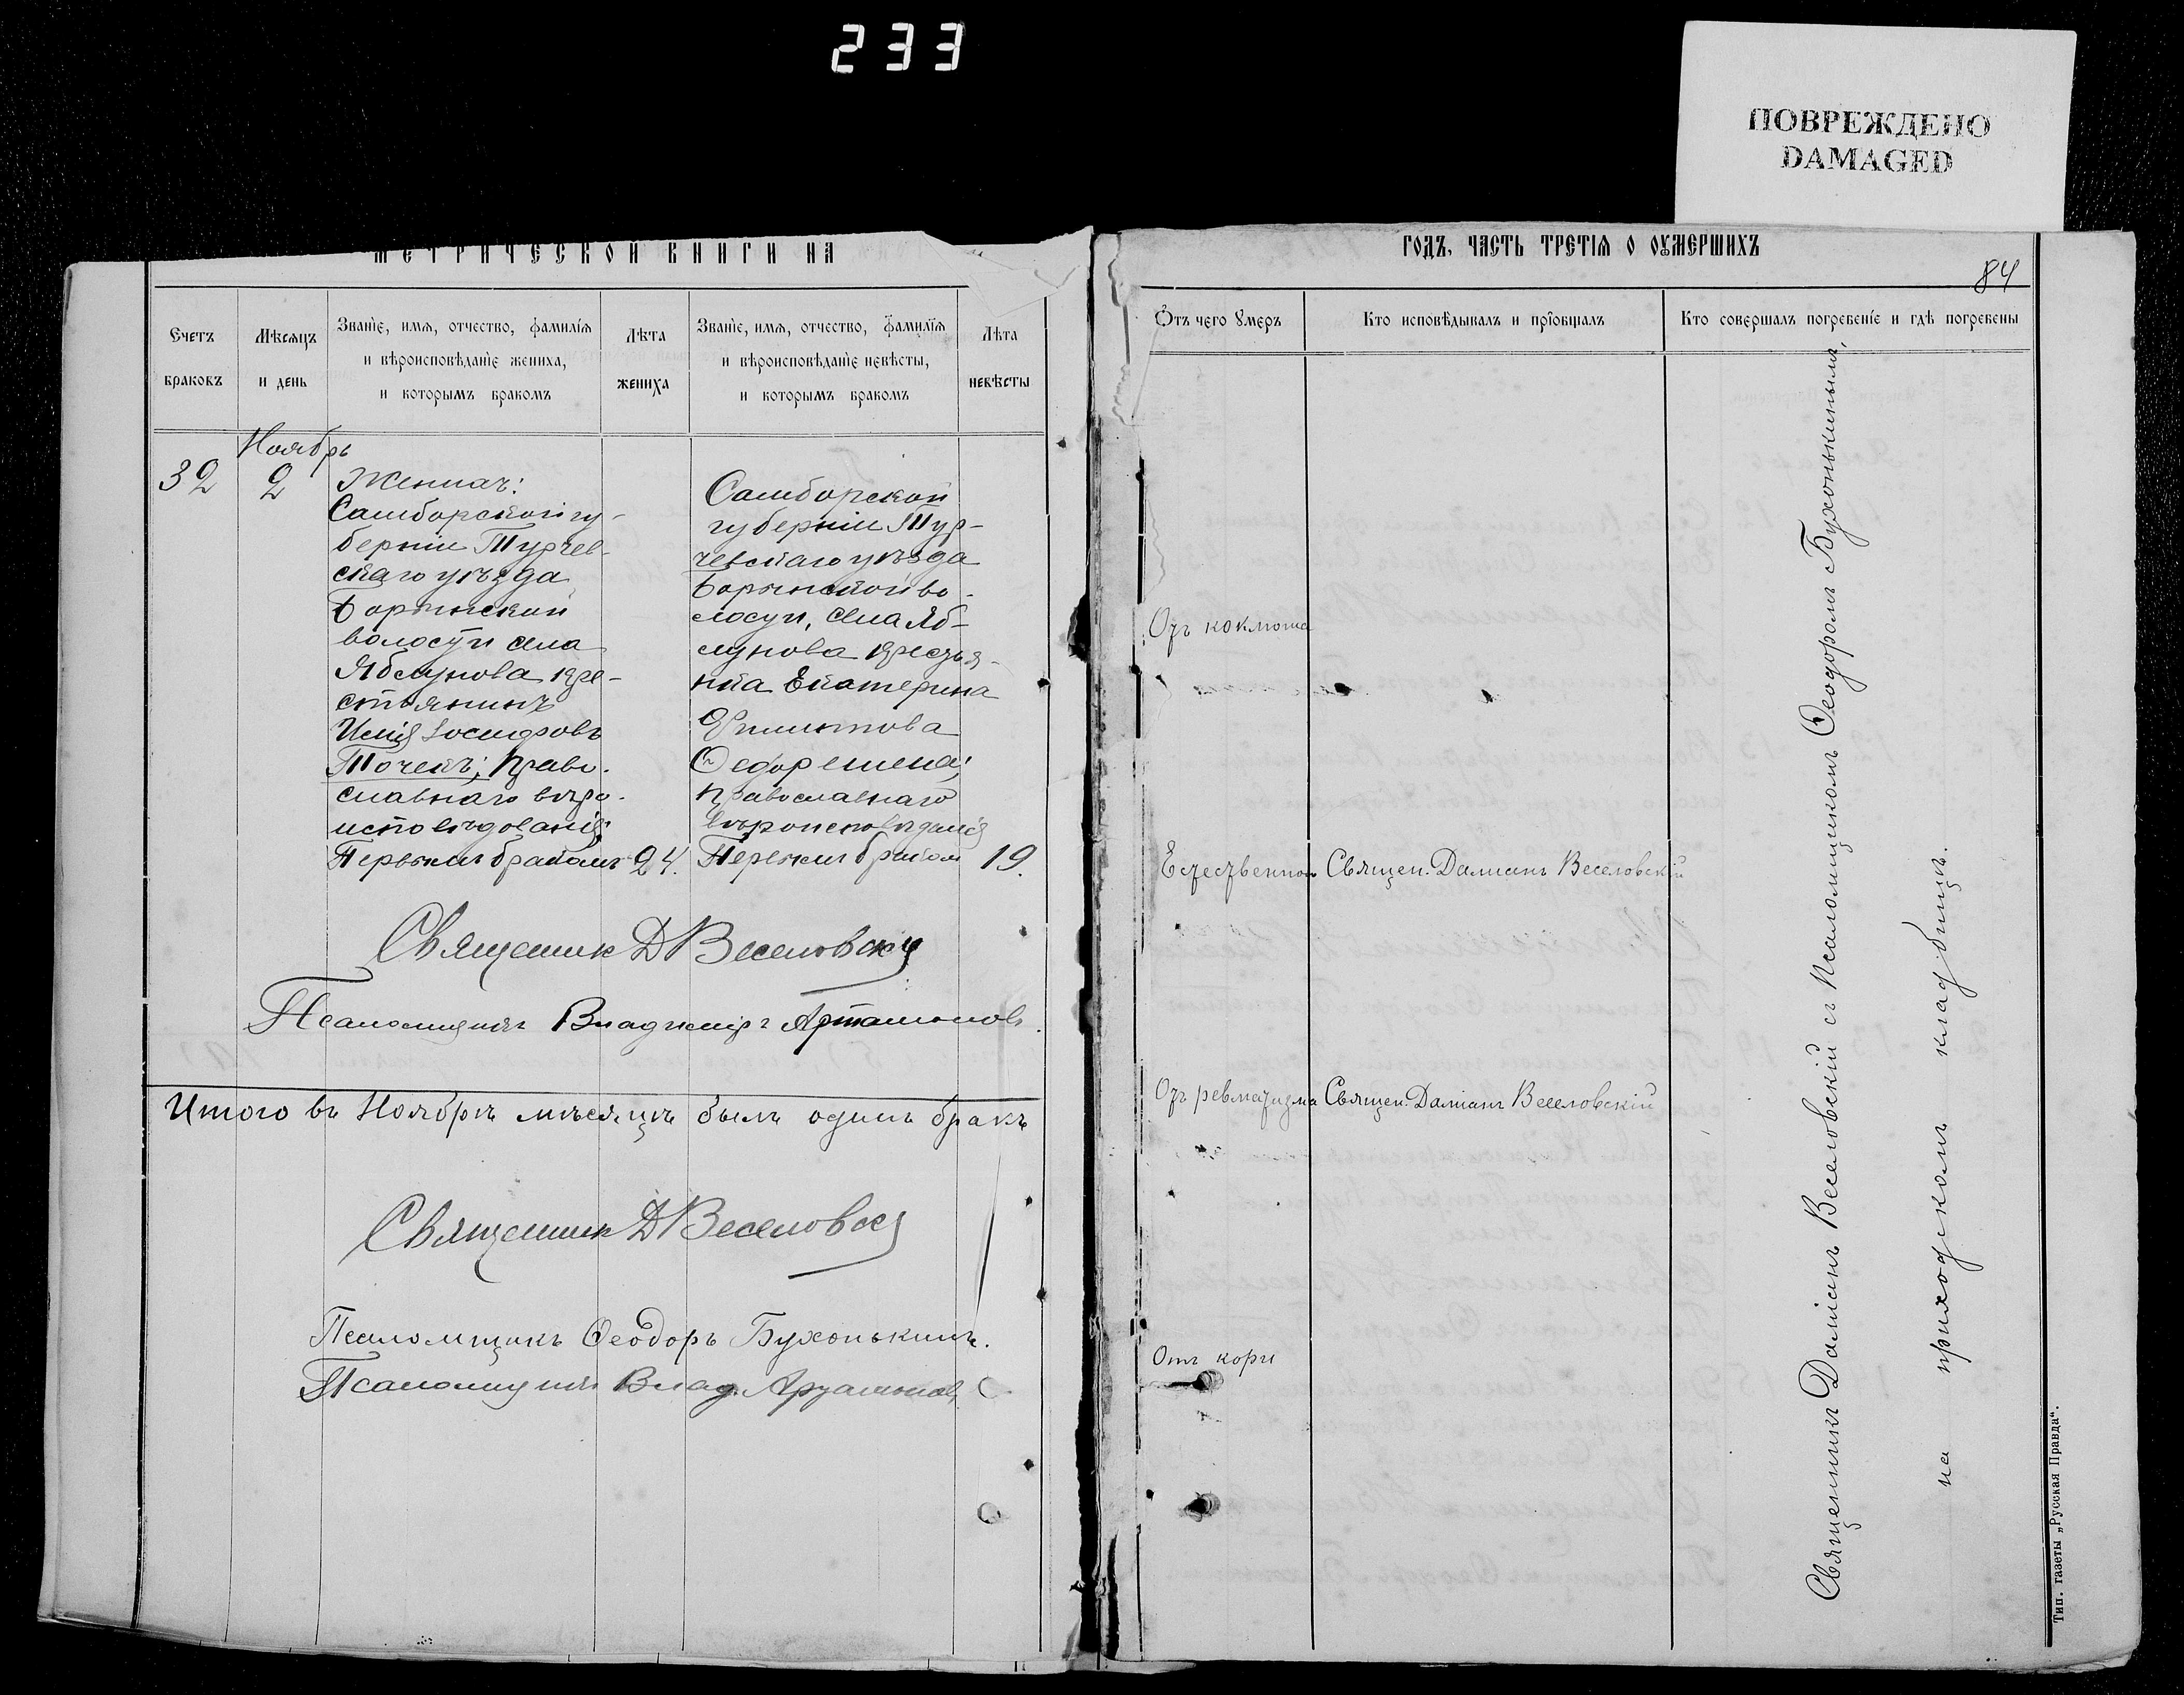 233
ПОВРЕЖДЕНО
DAMAGED
МЕТРИЧЕСКОЙ КНИГИ НА
Счетъ браковъ
Мѣсяцъ и день
Званіе, имя, отчество, фамилія и вѣроисповѣданіе жениха, и которымъ бракомъ
Лѣта жениха
Званіе, имя, отчество, фамилія и вѣроисповѣданіе невѣсты, и которымъ бракомъ
Лѣта невѣсты
Ноябрь
32
2
Женихъ:
Самборской гу-
берніи Турчев-
скаго уѣзда
Борынской
волости села
Яблунова кре-
стьянинъ
Илія Іосифовъ
Точекъ; право-
славнаго вѣро-
исповѣданія;
Первымъ бракомъ
24.
Самборской
губерніи Тур-
чевскаго уѣзда
Борынской во-
лости, села Яб-
лунова крестья-
нка Екатерина
православнаго
вѣроисповѣданія
Первымъ бракомъ
19.
Священник Д Веселовскій
Псаломщикъ Владиміръ Артамоновъ.
Итого въ Ноябрѣ мѣсяцѣ былъ одинъ бракъ
Священник Д Веселовскій
Псаломщикъ Ѳеодоръ Бухонькинъ.
Псаломщикъ Влад. Артамоновъ
ГОДЪ, ЧАСТЬ ТРЕТІЯ О ОУМЕРШИХЪ
84
Отъ чего умеръ
Кто исповѣдывалъ и пріобщалъ
Кто совершалъ погребеніе и гдѣ погребены
Отъ коклюша
Естественной
Священ. Даміанъ Веселовскій
Отъ ревматизма
Священ. Даміанъ Веселовскій
Отъ кори
Священникъ Даміанъ Веселовскій съ Псаломщикомъ Ѳеодоромъ Бухонькинымъ,
на приходскомъ кладбищѣ.
Тип. газеты „Русская Правда“.